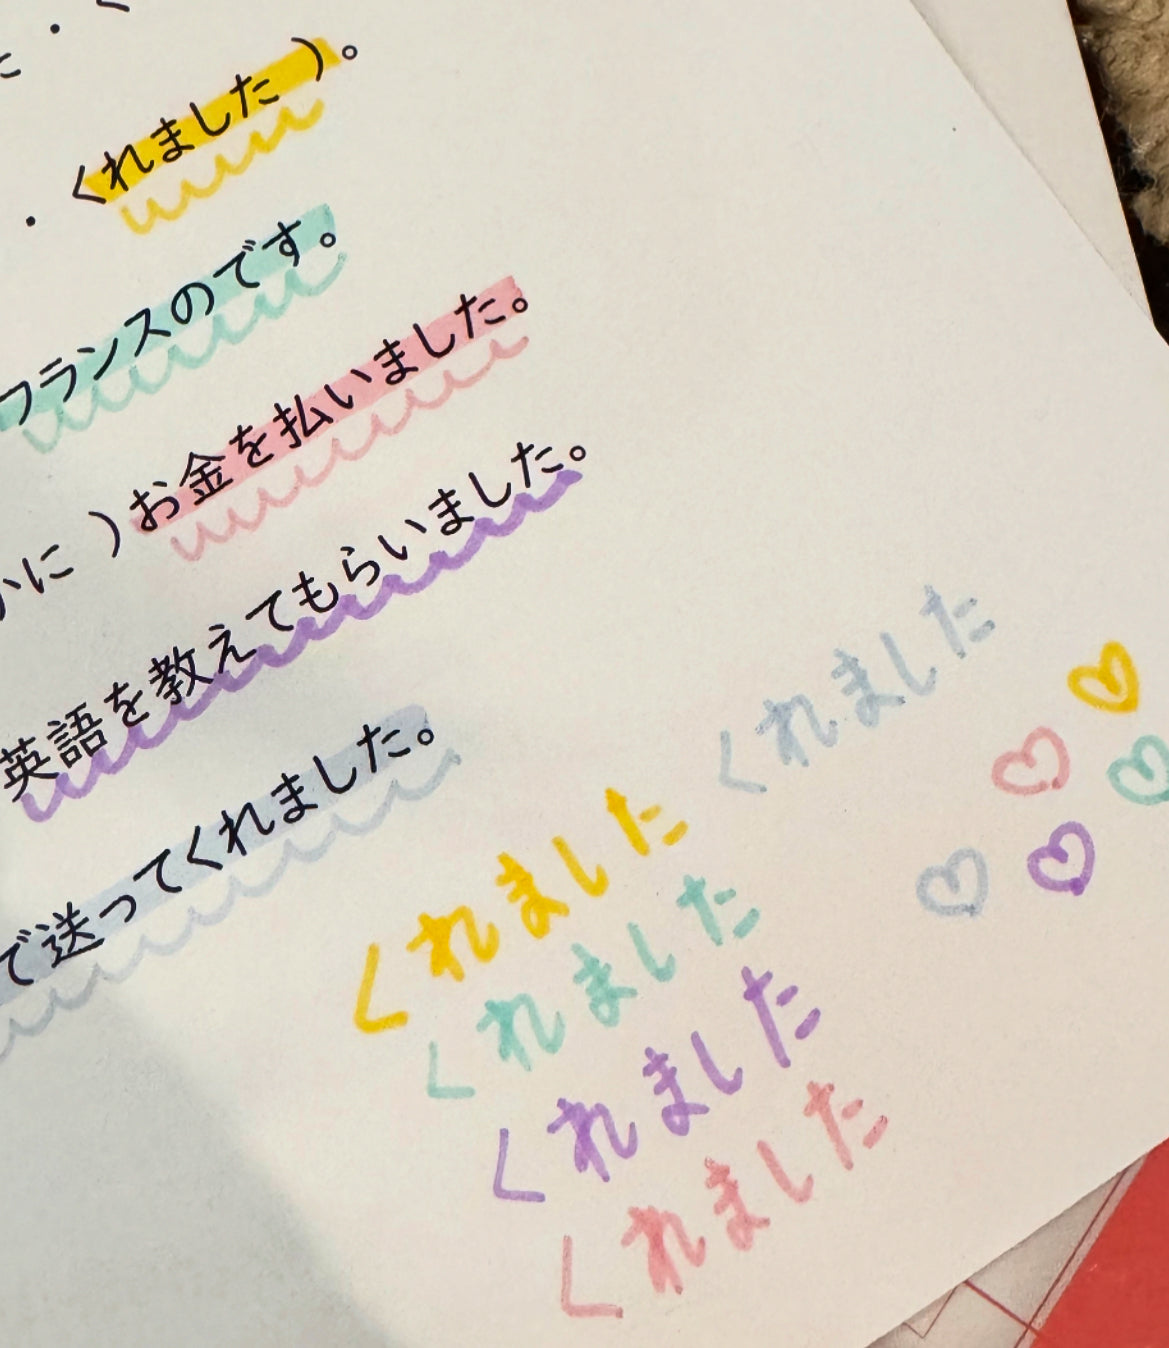 た・く
・くれました )。
フランスのです。
かに )お金を払いました。
英語を教えてもらいました。
で送ってくれました。
くれました
くれました
くれました
くれました
くれました